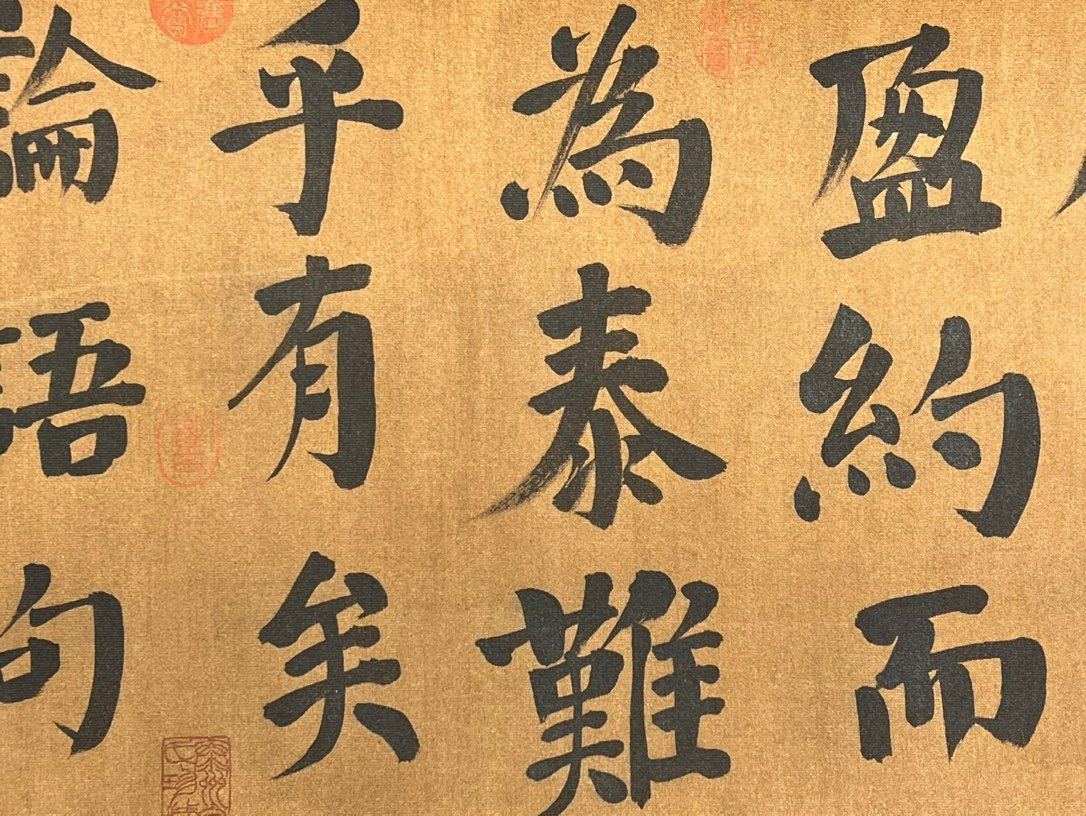 盈約而
為泰難
乎有矣
論語句